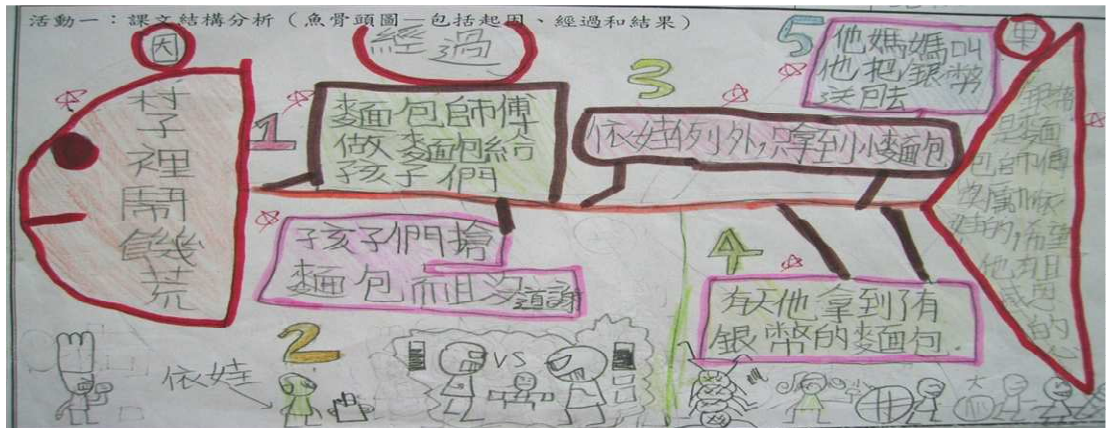 活動一：課文結構分析（魚骨頭圖—包括起因、經過和結果）
因
村子裡鬧饑荒
經過
1
麵包師傅
做麵包給
孩子們
2
孩子們搶
麵包而且沒道謝
3
依娃例外，只拿到小麵包
4
有天他拿到了有
銀幣的麵包.
5
他媽媽叫
他把銀幣
送回去
果
銀幣
是麵
包師傅
獎勵依
娃的，希望
他有且
感恩
的心
依娃
VS